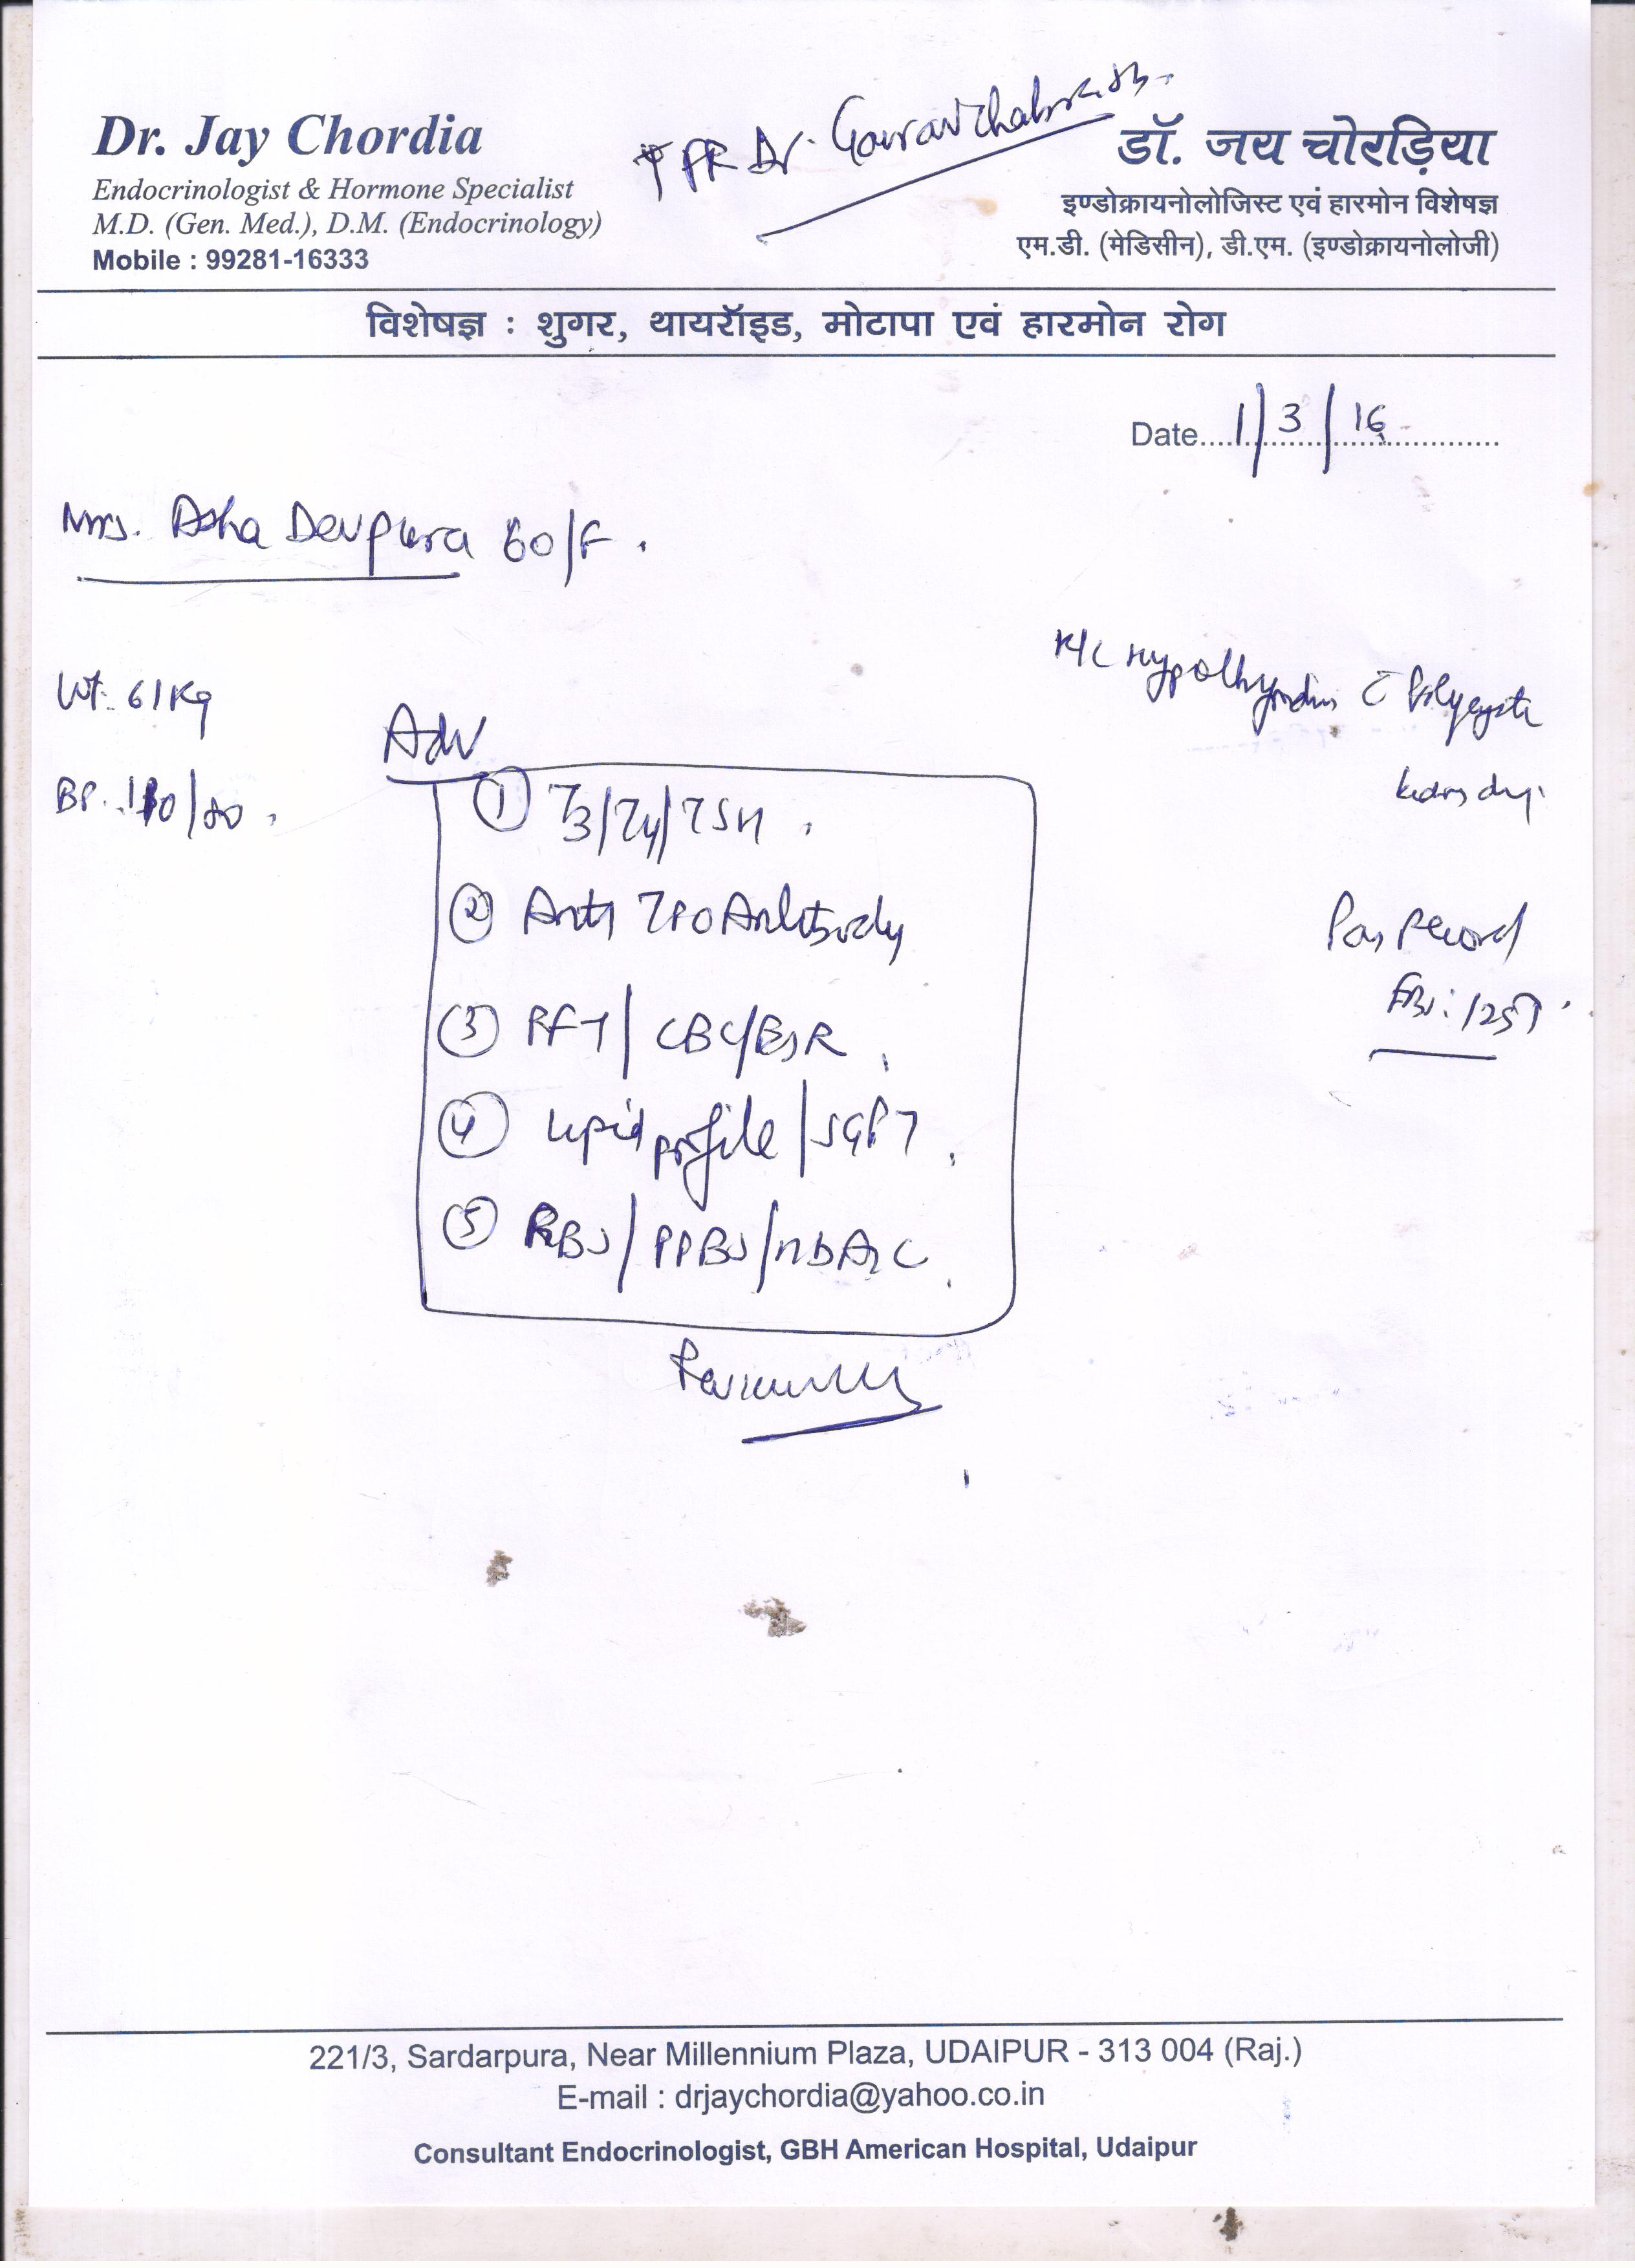 Dr. Jay Chordia
Endocrinologist & Hormone Specialist
M.D. (Gen. Med.), D.M. (Endocrinology)
Mobile : 99281-16333
Dr. Gaurav
डॉ. जय चोरड़िया
इण्डोक्रायनोलोजिस्ट एवं हारमोन विशेषज्ञ
एम.डी. (मेडिसीन), डी.एम. (इण्डोक्रायनोलोजी)
विशेषज्ञ : शुगर, थायरॉइड, मोटापा एवं हारमोन रोग
Date 1/3/16
Mrs. Asha Devpura 60/F.
K/C Hypothyroidism c̄ Polycystic
Wt. 61Kg
BP.
Adv
① T3/T4/TSH
② Anti TPO Antibody
③ RFT/ CBC/ESR
④ Lipid profile/SGPT
⑤ RBS/PPBS/HbA1C
221/3, Sardarpura, Near Millennium Plaza, UDAIPUR - 313 004 (Raj.)
E-mail : drjaychordia@yahoo.co.in
Consultant Endocrinologist, GBH American Hospital, Udaipur